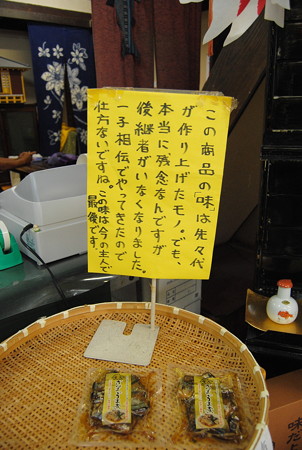 この商品の「味」は先々代
が作り上げたモノ。でも、
本当に残念なんですが
後継者がいなくなりました。
一子相伝でやってきたので
仕方ないですね。この味は今の主人で
最後です。
味だ